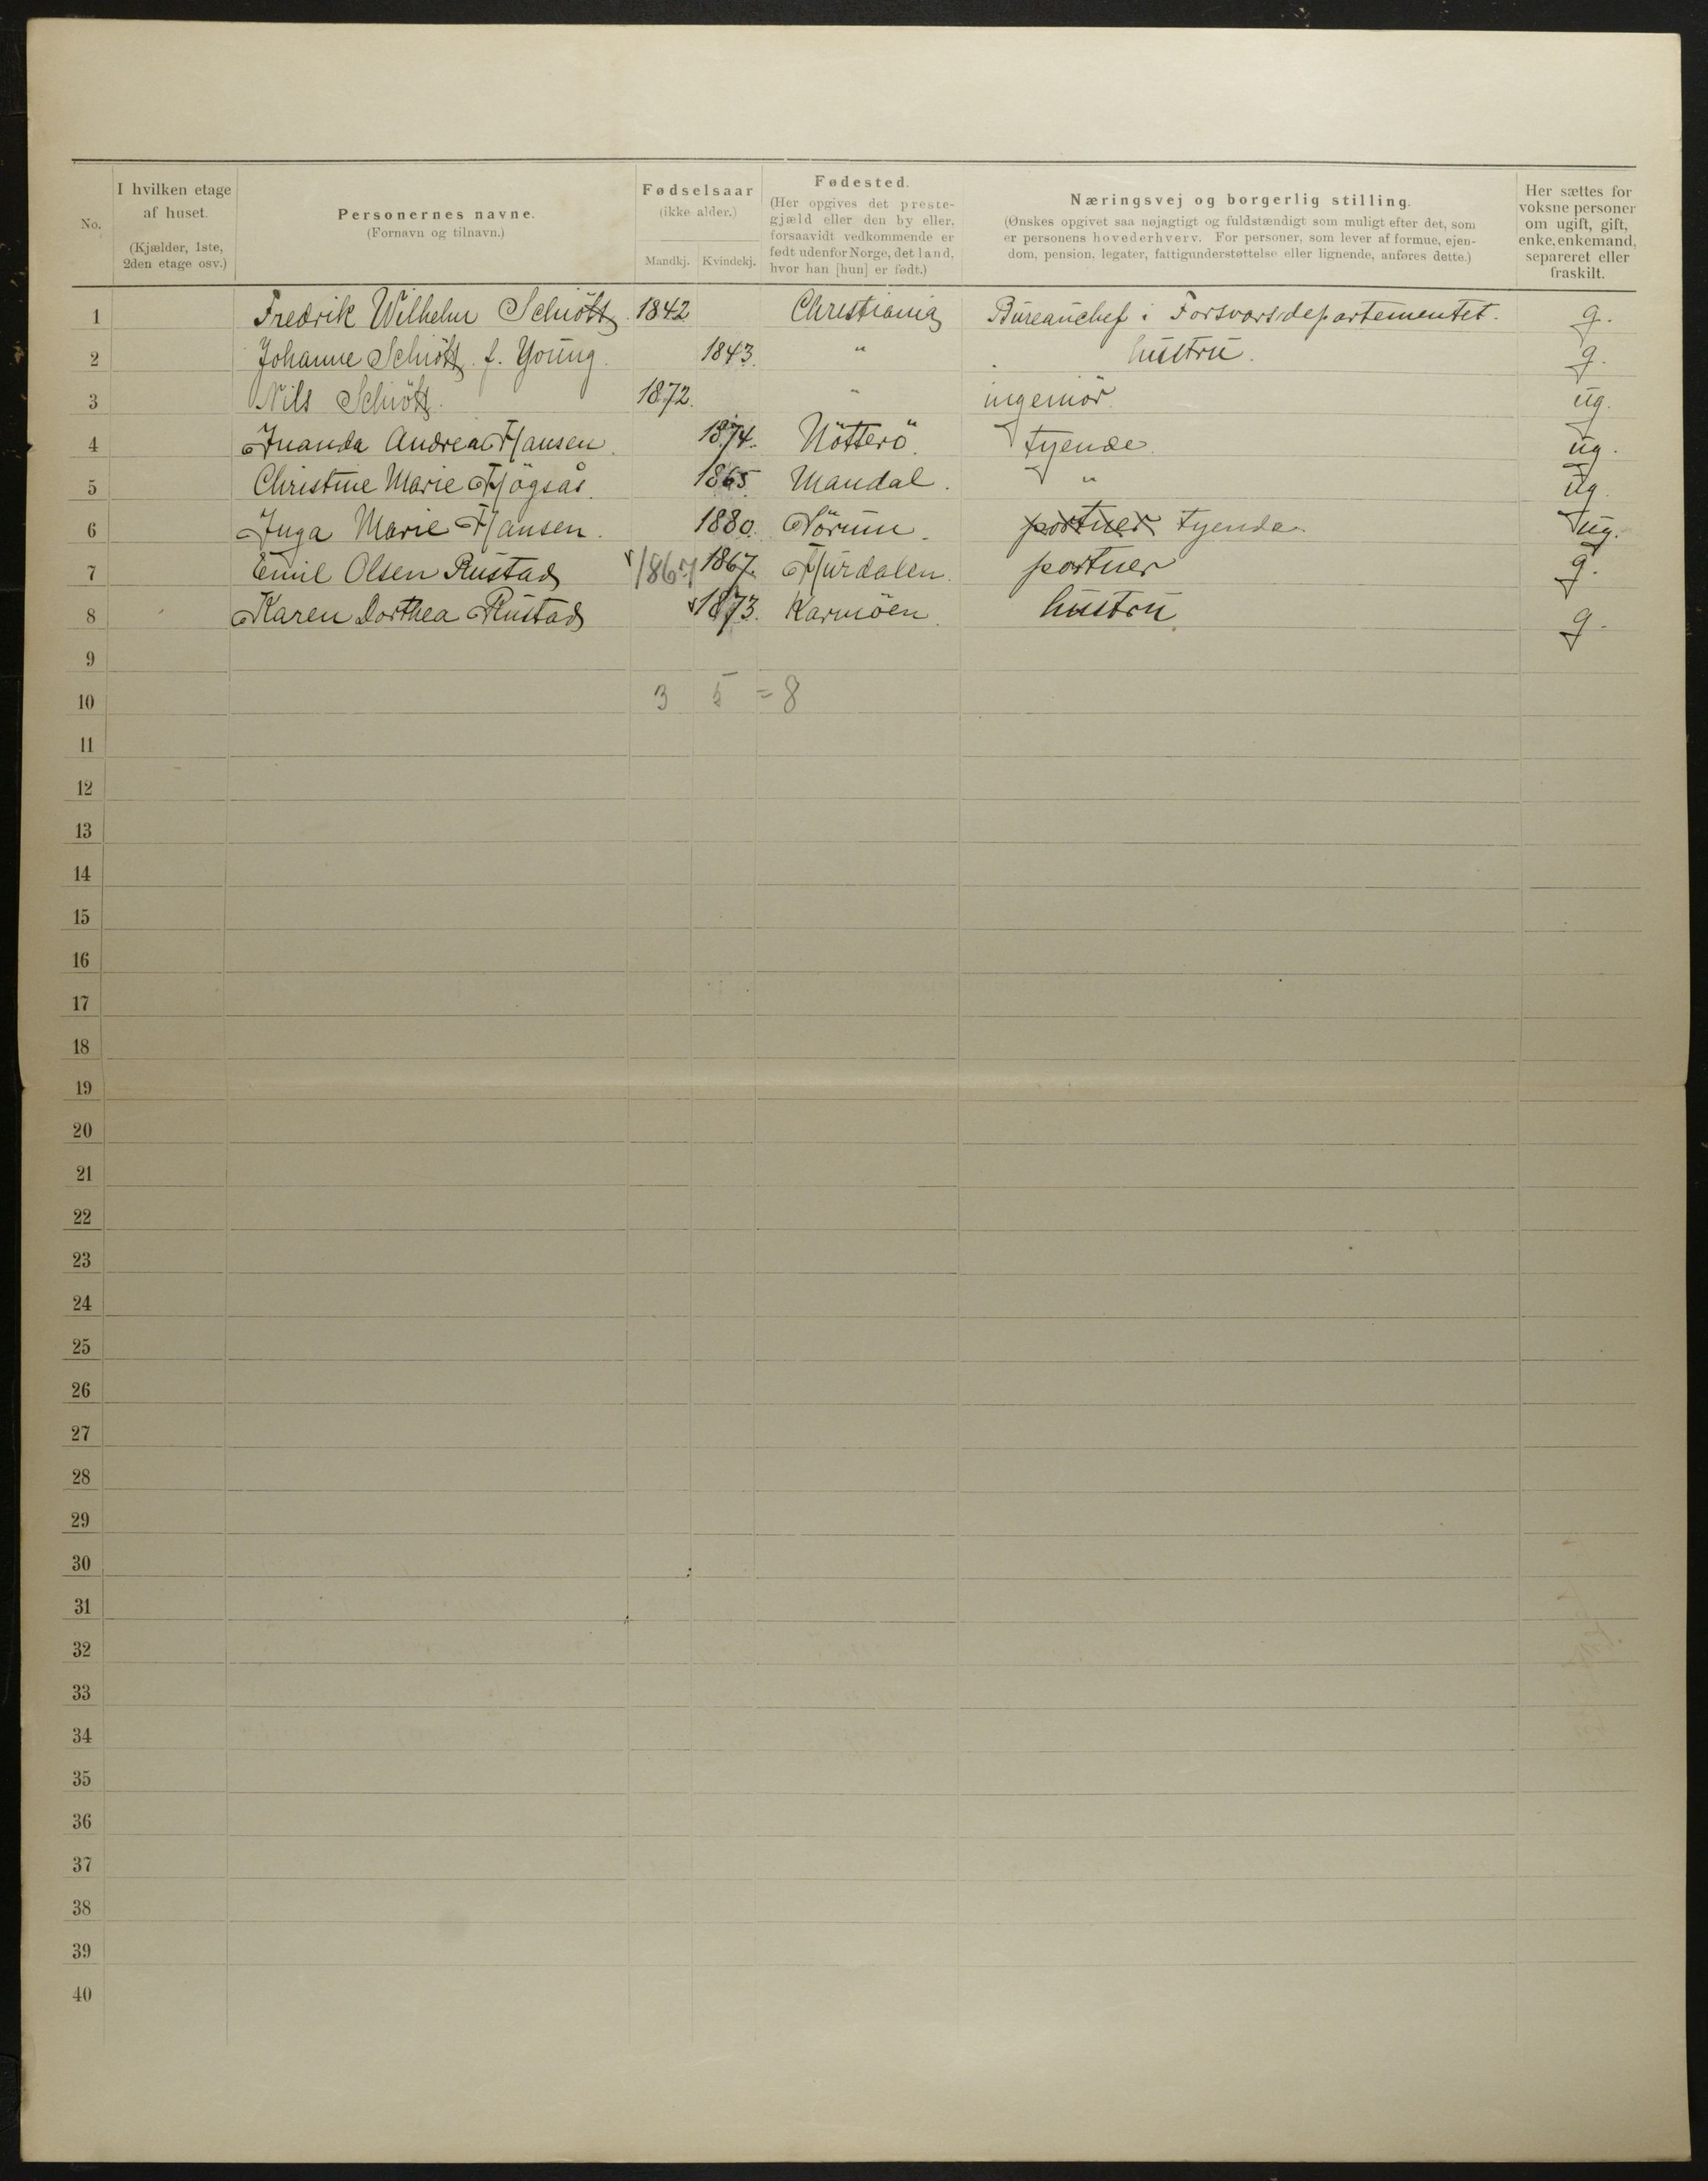 No.
I hvilken etage af huset.
(Kjælder, 1ste, 2den etage osv.)
Personernes navne.
(Fornavn og tilnavn.)
Fødselsaar
(ikke alder.)
Mandkj. Kvindekj.
Fødested.
(Her opgives det preste-
gjæld eller den by eller,
forsaavidt vedkommende er
født udenfor Norge, det land,
hvor han [hun] er født.)
Næringsvej og borgerlig stilling.
(Ønskes opgivet saa nøjagtigt og fuldstændigt som muligt efter det, som
er personens hovederhverv. For personer, som lever af formue, ejen-
dom, pension, legater, fattigunderstøttelse eller lignende, anføres dette.)
Her sættes for
voksne personer
om ugift, gift,
enke, enkemand,
separeret eller
fraskilt.
1 Fredrik Wilhelm Schiött 1842 Christiania Bureauchef i Forsvarsdepartementet. g.
2 Johanne Schiött f. Young. 1843. " hustru. g.
3 Nils Schiött. 1872. " ingeniör. ug.
4 Inanda Andrea Hansen. 1874. Nötterö. tyende. ug.
5 Christine Marie Högsås. 1865. Mandal. " ug.
6 Inga Marie Hansen. 1880. Sörum. portner tyende. ug.
7 Emil Olsen Rustad 1867 1867. Hurdalen. portner g.
8 Karen Dorthea Rustad 1873. Karmöen. hustru. g.
9
10 3 5 = 8
11
12
13
14
15
16
17
18
19
20
21
22
23
24
25
26
27
28
29
30
31
32
33
34
35
36
37
38
39
40